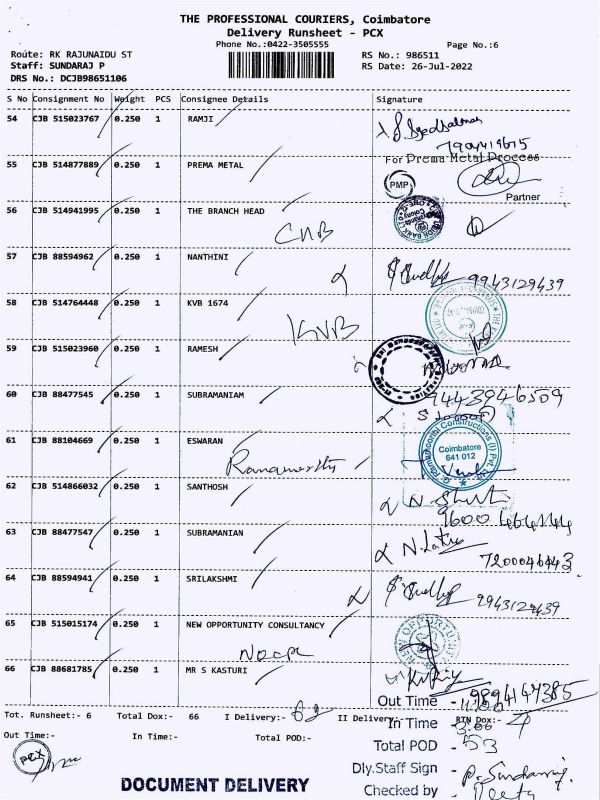 THE PROFESSIONAL COURIERS, Coimbatore
Delivery Runsheet - PCX
Phone No.:0422-3505555
Page No.:6
Route: RK RAJUNAIDU ST
RS No.: 986511
Staff: SUNDARAJ P
RS Date: 26-Jul-2022
DRS No.: DCJB98651106
S No Consignment No Weight PCS Consignee Details Signature
54 CJB 515023767 0.250 1 RAMJI
55 CJB 514877889 0.250 1 PREMA METAL
For Prema Metal Process
PMP
Partner
56 CJB 514941995 0.250 1 THE BRANCH HEAD
CUB
57 CJB 88594962 0.250 1 NANTHINI
9943129439
58 CJB 514764448 0.250 1 KVB 1674
KVB
59 CJB 515023960 0.250 1 RAMESH
60 CJB 88477545 0.250 1 SUBRAMANIAM
9443946509
61 CJB 88104669 0.250 1 ESWARAN
Ramamoorthi
Ramamoorthi Constructions (I) Pvt. Ltd.
Coimbatore
641 012
62 CJB 514866032 0.250 1 SANTHOSH
9600 464144
63 CJB 88477547 0.250 1 SUBRAMANIAN
N. Latha
7200046443
64 CJB 88594941 0.250 1 SRILAKSHMI
9943129439
65 CJB 515015174 0.250 1 NEW OPPORTUNITY CONSULTANCY
NEW OPPORTUNITY
66 CJB 88681785 0.250 1 MR S KASTURI
9894147385
Out Time -
Tot. Runsheet:- 6 Total Dox:- 66 I Delivery:- 62 II Delivery:- RTN Dox:-
In Time -
Out Time:- In Time:- Total POD:-
Total POD - 53
PCX
Dly.Staff Sign - P. Sundarraj
DOCUMENT DELIVERY
Checked by -